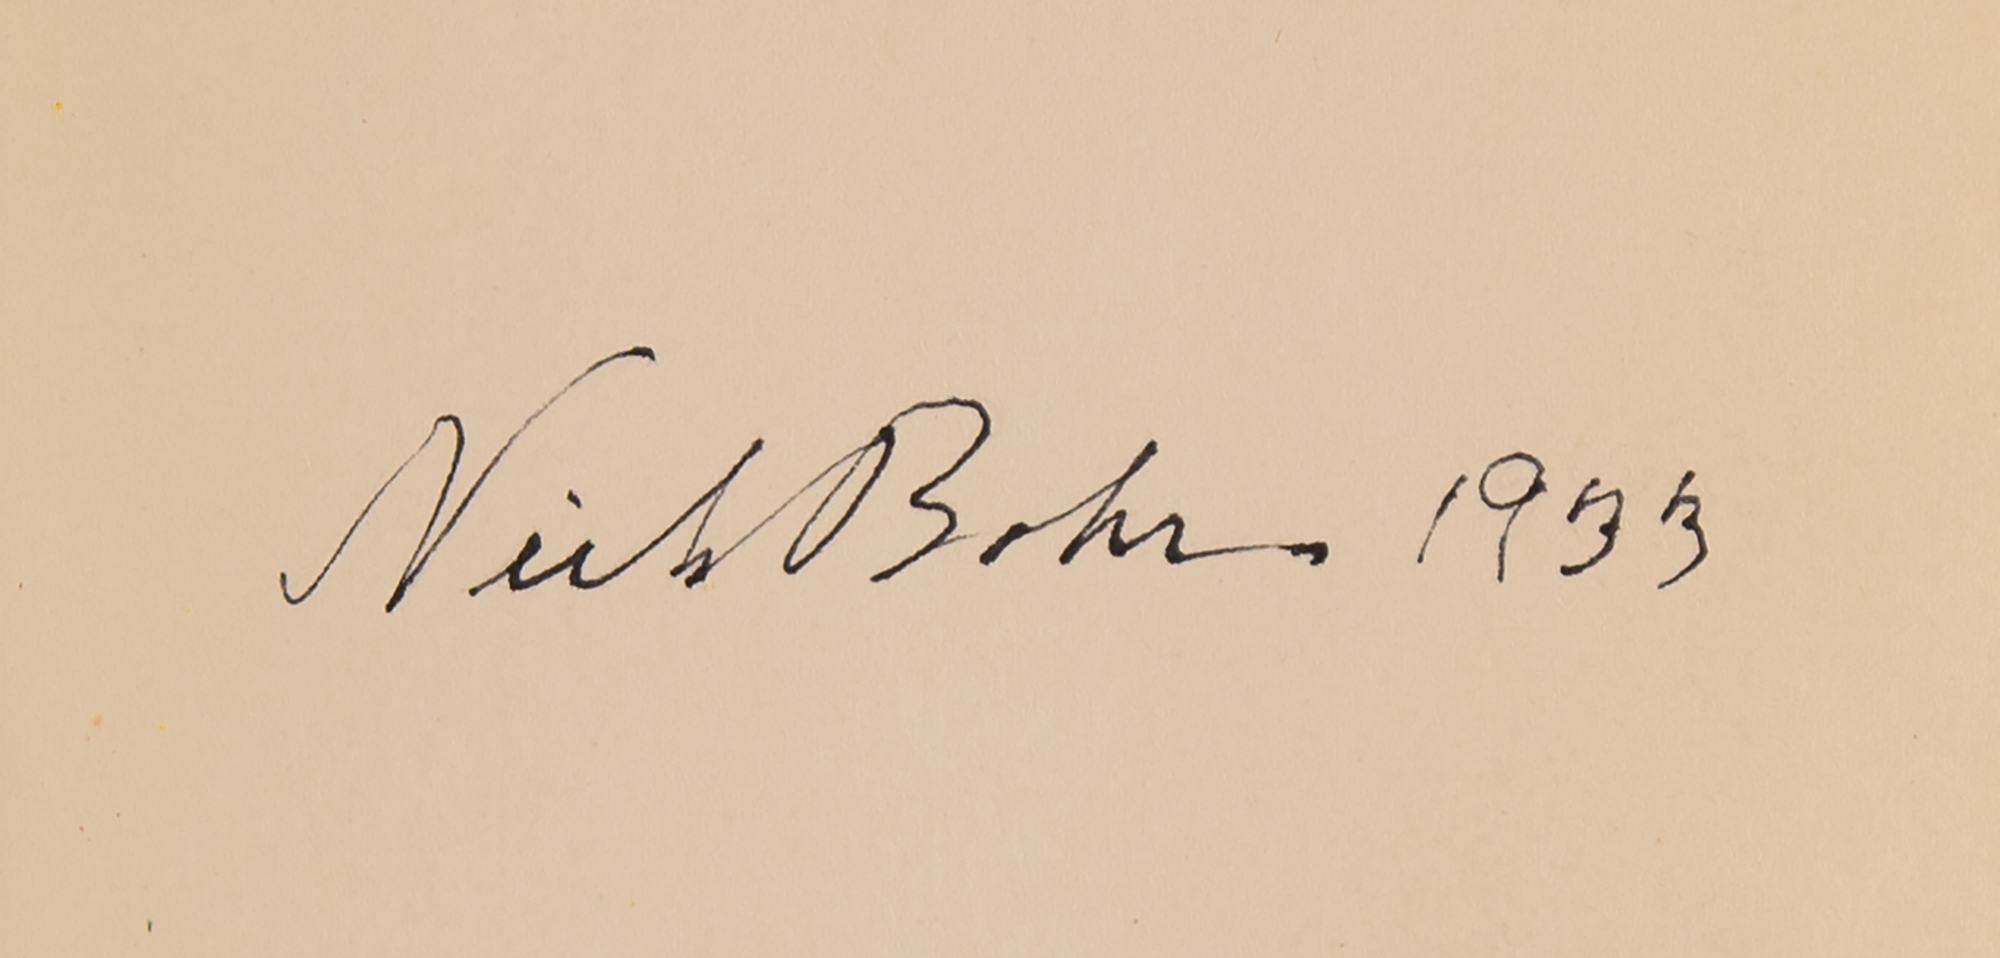 Niels Bohr 1933